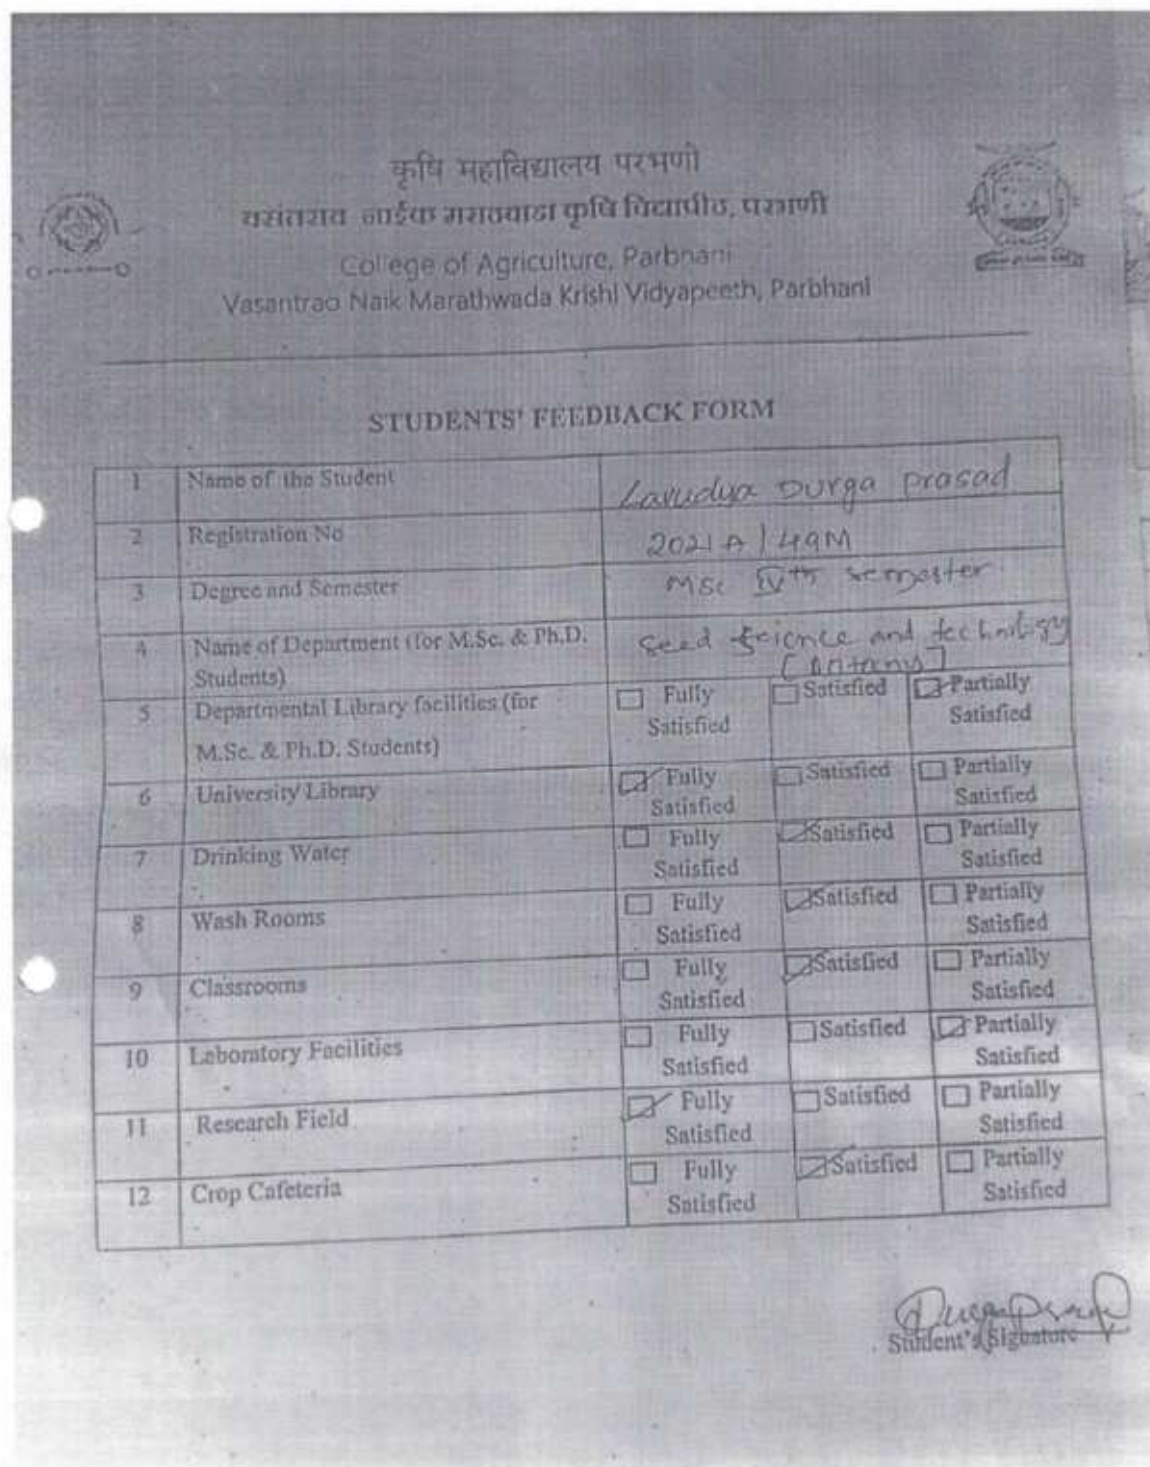 कृषि महाविद्यालय परभणी
वसंतराव नाईक मराठवाडा कृषि विद्यापीठ, परभणी
College of Agriculture, Parbhani
Vasantrao Naik Marathwada Krishi Vidyapeeth, Parbhani
STUDENTS' FEEDBACK FORM
1 Name of the Student Lavudya Durga prasad
2 Registration No 2021 A / 49M
3 Degree and Semester MSc IVth semester
4 Name of Department (for M.Sc. & Ph.D. Students) Seed Science and technology [Botany]
5 Departmental Library facilities (for M.Sc. & Ph.D. Students) ☐ Fully Satisfied ☐ Satisfied ☑ Partially Satisfied
6 University Library ☑ Fully Satisfied ☐ Satisfied ☐ Partially Satisfied
7 Drinking Water ☐ Fully Satisfied ☑ Satisfied ☐ Partially Satisfied
8 Wash Rooms ☐ Fully Satisfied ☑ Satisfied ☐ Partially Satisfied
9 Classrooms ☐ Fully Satisfied ☑ Satisfied ☐ Partially Satisfied
10 Laboratory Facilities ☐ Fully Satisfied ☐ Satisfied ☑ Partially Satisfied
11 Research Field ☑ Fully Satisfied ☐ Satisfied ☐ Partially Satisfied
12 Crop Cafeteria ☐ Fully Satisfied ☑ Satisfied ☐ Partially Satisfied
Durgaprasad
Student's Signature